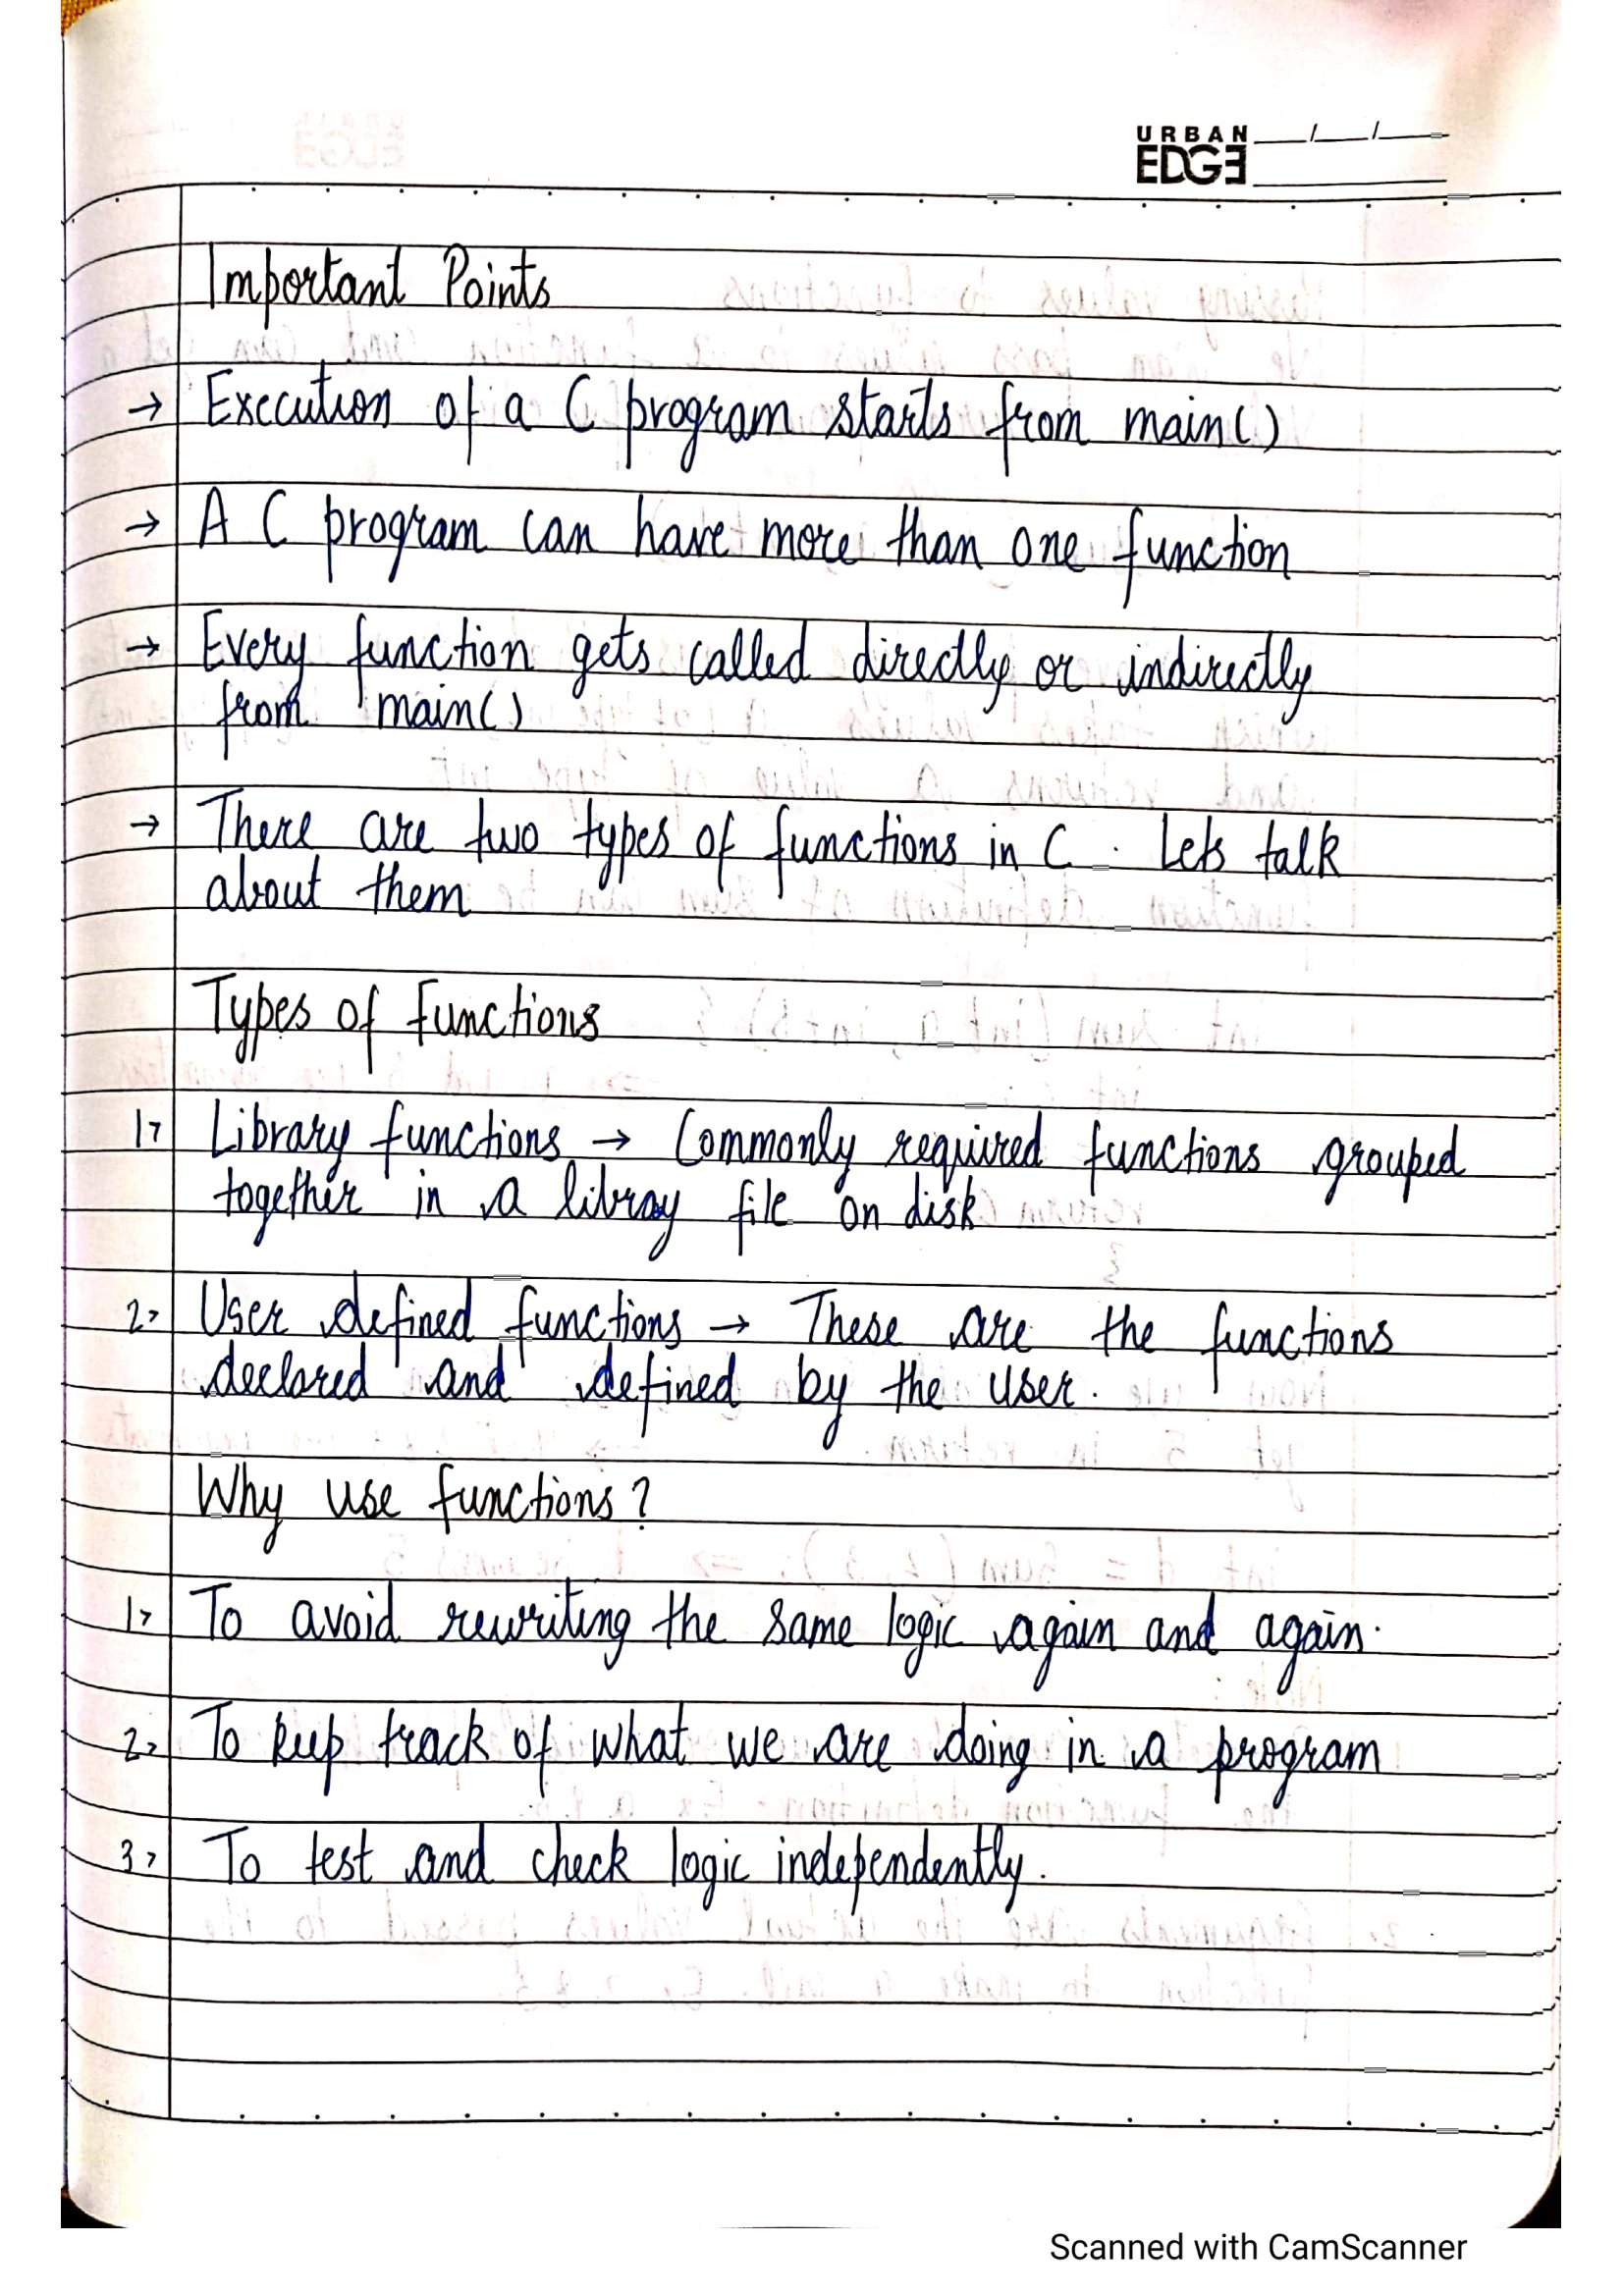 URBAN
EDGE
Important Points
→ Execution of a C program starts from main()
→ A C program can have more than one function
→ Every function gets called directly or indirectly
from main()
→ There are two types of functions in C. Lets talk
about them
Types of functions
1> Library functions → Commonly required functions grouped
together in a libray file on disk
2> User defined functions → These are the functions
declared and defined by the user.
Why use functions?
1> To avoid rewriting the same logic again and again.
2> To keep track of what we are doing in a program
3> To test and check logic independently.
Scanned with CamScanner